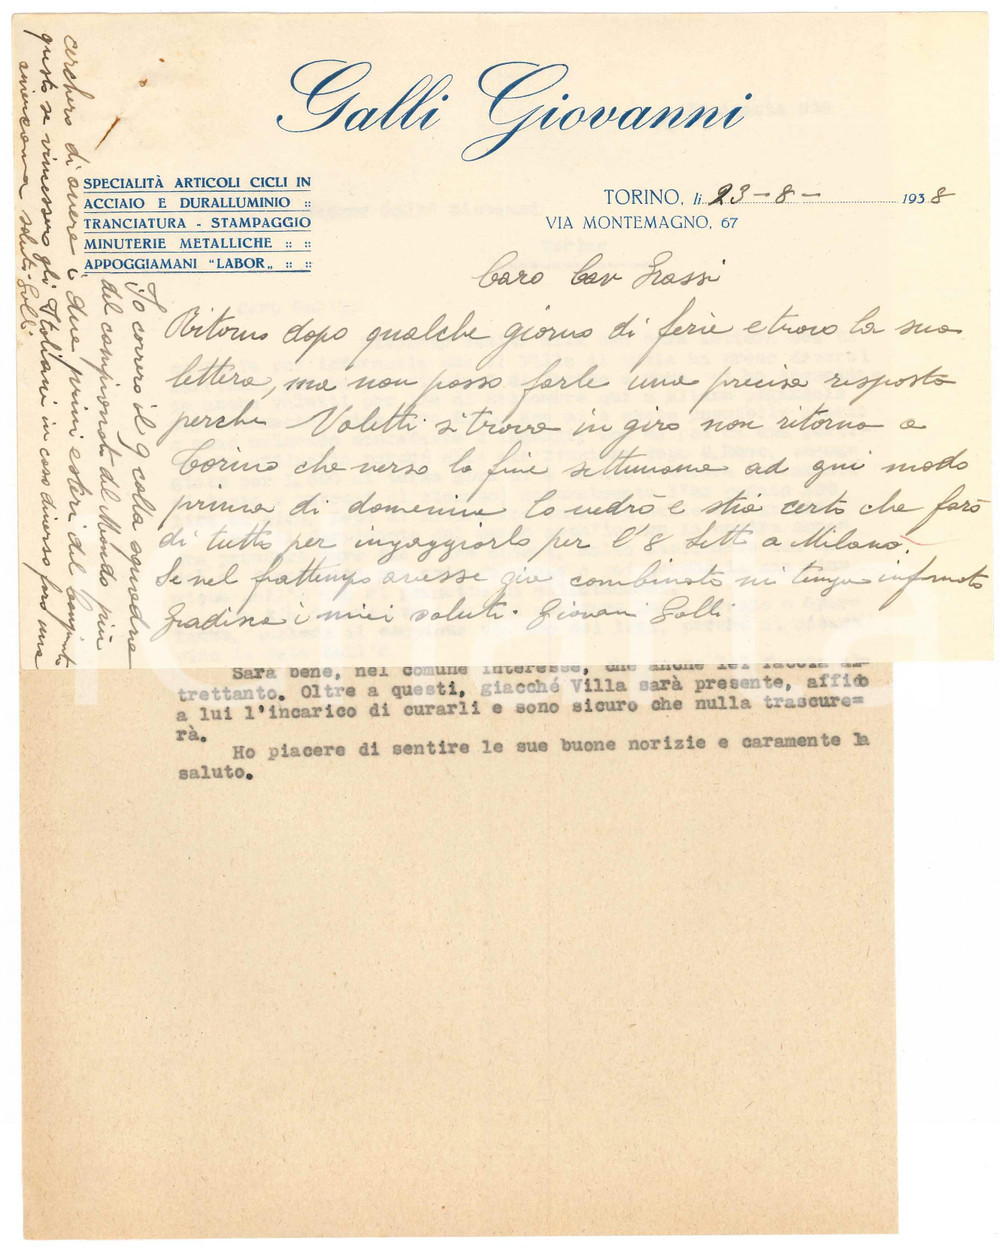 Galli Giovanni
SPECIALITÀ ARTICOLI CICLI IN
ACCIAIO E DURALLUMINIO ::
TRANCIATURA - STAMPAGGIO
MINUTERIE METALLICHE :: ::
APPOGGIAMANI "LABOR„ :: ::
TORINO, li 23-8- 1938
VIA MONTEMAGNO, 67
Caro Cav Grassi
Ritorno dopo qualche giorno di ferie e trovo la sua
lettera, ma non posso farle una precisa risposta
perche Valetti si trova in giro non ritorna a
Torino che verso la fine settimana ad ogni modo
prima di domenica lo vedrò e stia certo che farò
di tutto per ingaggiarlo per l'8 Sett a Milano.
Se nel frattempo avesse gia combinato mi tenga informato
Gradisca i miei saluti. Giovani Galli
Io correro il 9 colla squadra
del campionato del Mondo più
cercherò di avere i due primi esteri del
questo se vincessero gli Italiani in caso diverso farò una
americana saluti Galli
Sarà bene, nel comune interesse, che anche lei faccia al=
trettanto. Oltre a questi, giacché Villa sarà presente, affido
a lui l'incarico di curarli e sono sicuro che nulla trascure=
rà.
Ho piacere di sentire le sue buone norizie e caramente la
saluto.